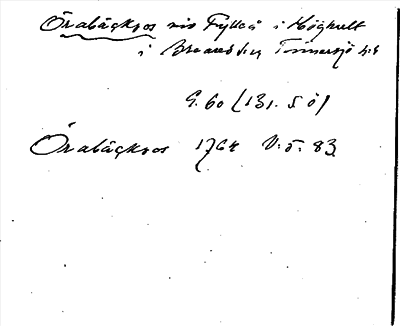 Örabäckɂos vid Fylleå i Höghult
i Breared sn, Tönnersjö hd
G. 60 (131. 5 ö)
Örabäckos 1764 V: 5. 83